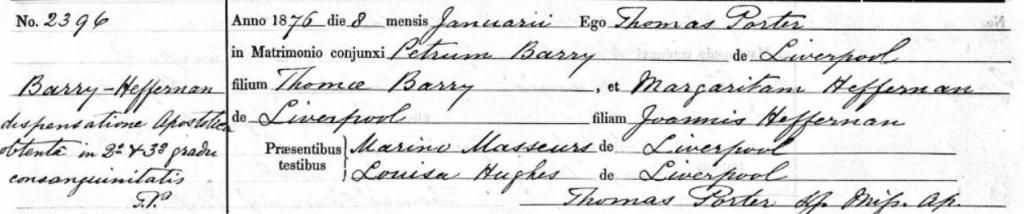 No. 2396
Barry-Heffernan
dispensatione Apostolica
obtentâ in 2º & 3º gradu
consanguinitatis
T.P.
Anno 1876 die 8 mensis Januarii Ego Thomas Porter
in Matrimonio conjunxi Petrum Barry de Liverpool
filium Thomæ Barry , et Margaritam Heffernan
de Liverpool filiam Joannis Heffernan
Præsentibus testibus
Marino Masseurs de Liverpool
Louisa Hughes de Liverpool
Thomas Porter Miss. Ap.